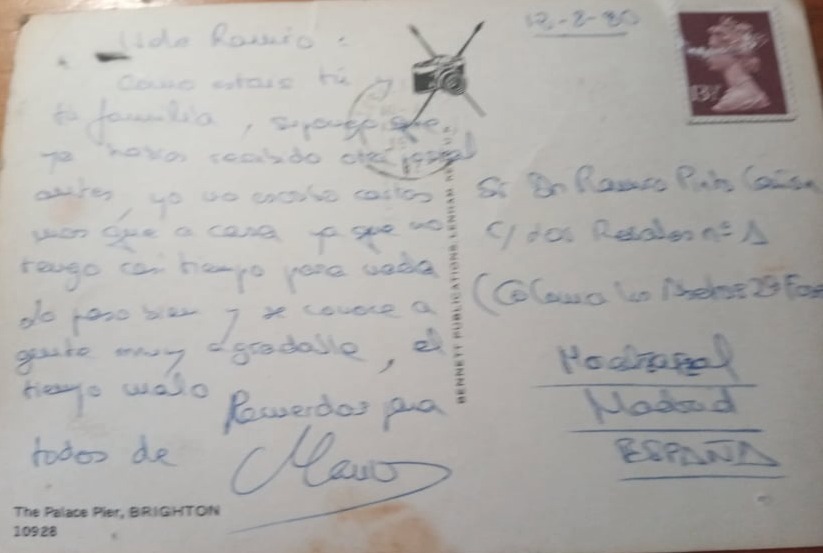 12-8-80
Ramiro:
Como estais tú y
tu familia, supongo que
ya habrás recibido otra postal
antes, yo no escribo cartas
mas que a casa ya que no
tengo casi tiempo para nada
lo paso bien y se conoce a
gente muy agradable, el
tiempo malo
Recuerdos para
todos de
The Palace Pier, BRIGHTON
10928
BENNETT PUBLICATIONS
13½
Sr Dn Ramiro Pinto
C/ Los Rosales nº 1
(Colonia Los 2ª Fase
Madrid
ESPAÑA